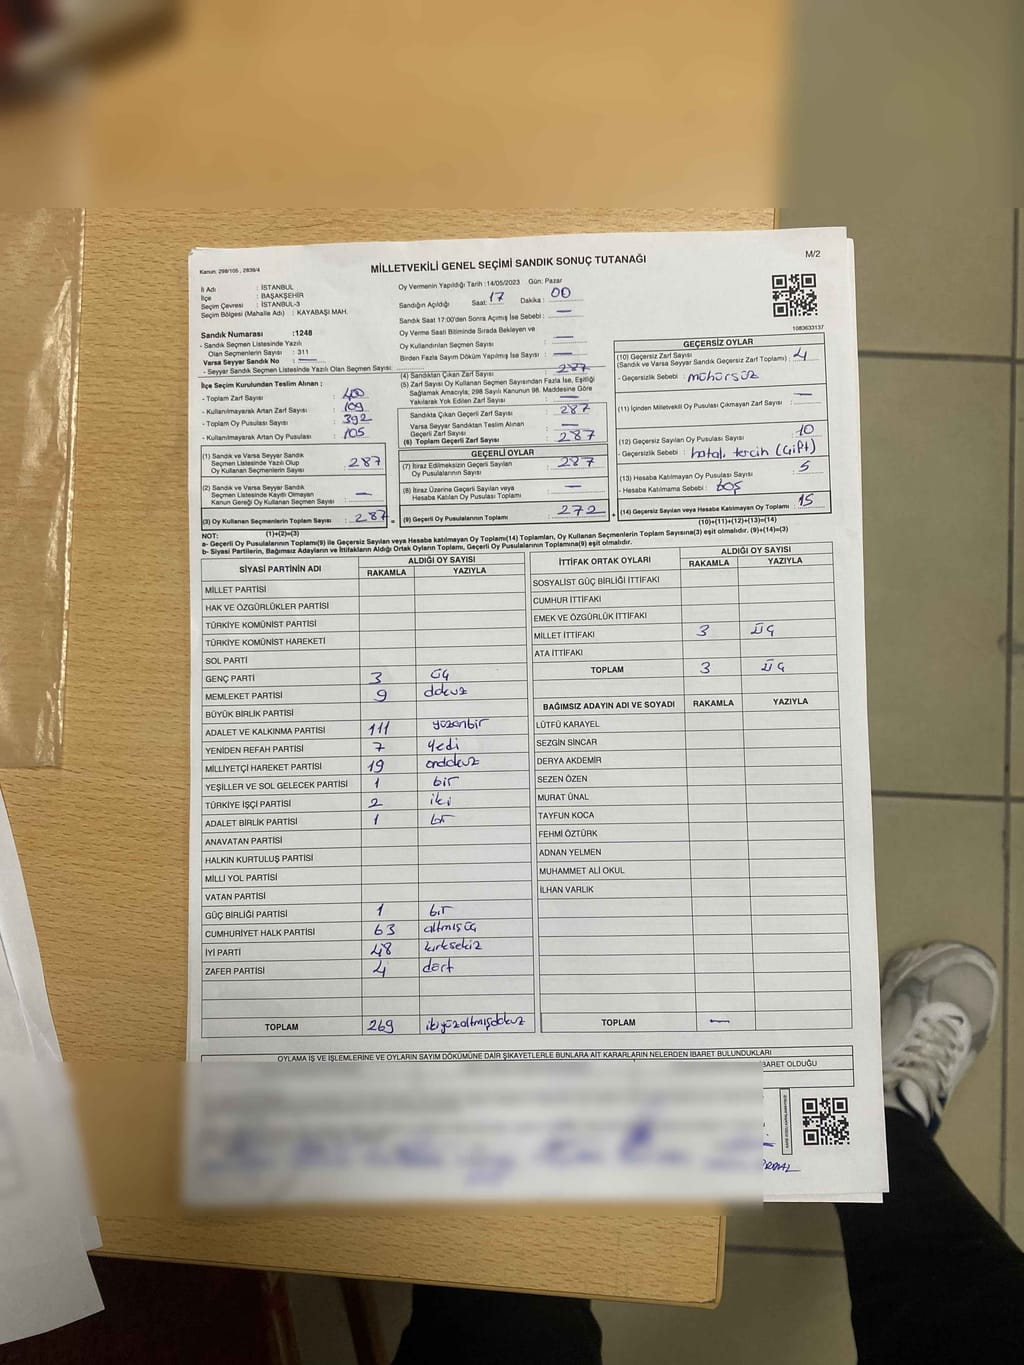 Kanun: 298/105 , 2839/4
MİLLETVEKİLİ GENEL SEÇİMİ SANDIK SONUÇ TUTANAĞI
M/2
İl Adı : İSTANBUL
İlçe : BAŞAKŞEHİR
Seçim Çevresi : İSTANBUL-3
Seçim Bölgesi (Mahalle Adı) : KAYABAŞI MAH.
Sandık Numarası :1248
- Sandık Seçmen Listesinde Yazılı
Olan Seçmenlerin Sayısı : 311
Varsa Seyyar Sandık No : —
- Seyyar Sandık Seçmen Listesinde Yazılı Olan Seçmen Sayısı:
Oy Vermenin Yapıldığı Tarih : 14/05/2023 Gün: Pazar
Sandığın Açıldığı Saat: 17 Dakika : 00
Sandık Saat 17:00'den Sonra Açımış İse Sebebi : —
Oy Verme Saati Bitiminde Sırada Bekleyen ve
Oy Kullandırılan Seçmen Sayısı : —
Birden Fazla Sayım Döküm Yapılmış İse Sayısı : —
1083633137
İlçe Seçim Kurulundan Teslim Alınan :
- Toplam Zarf Sayısı : 400
- Kullanılmayarak Artan Zarf Sayısı : 109
- Toplam Oy Pusulası Sayısı : 392
- Kullanılmayarak Artan Oy Pusulası : 105
(1) Sandık ve Varsa Seyyar Sandık
Seçmen Listesinde Yazılı Olup
Oy Kullanan Seçmenlerin Sayısı : 287
(2) Sandık ve Varsa Seyyar Sandık
Seçmen Listesinde Kayıtlı Olmayan
Kanun Gereği Oy Kullanan Seçmen Sayısı : —
(3) Oy Kullanan Seçmenlerin Toplam Sayısı : 287 =
(1)+(2)=(3)
(4) Sandıktan Çıkan Zarf Sayısı : 287
(5) Zarf Sayısı Oy Kullanan Seçmen Sayısından Fazla İse, Eşitliği
Sağlamak Amacıyla; 298 Sayılı Kanunun 98. Maddesine Göre
Yakılarak Yok Edilen Zarf Sayısı : —
Sandıkta Çıkan Geçerli Zarf Sayısı : 287
Varsa Seyyar Sandıktan Teslim Alınan
Geçerli Zarf Sayısı : —
(6) Toplam Geçerli Zarf Sayısı : 287
GEÇERLİ OYLAR
(7) İtiraz Edilmeksizin Geçerli Sayılan
Oy Pusulalarının Sayısı : 287
(8) İtiraz Üzerine Geçerli Sayılan veya
Hesaba Katılan Oy Pusulası Toplamı : —
(9) Geçerli Oy Pusulalarının Toplamı : 272 +
GEÇERSİZ OYLAR
(10) Geçersiz Zarf Sayısı
(Sandık ve Varsa Seyyar Sandık Geçersiz Zarf Toplamı) : 4
- Geçersizlik Sebebi : mühürsüz
(11) İçinden Milletvekili Oy Pusulası Çıkmayan Zarf Sayısı : —
(12) Geçersiz Sayılan Oy Pusulası Sayısı : 10
- Geçersizlik Sebebi : hatalı tercih (çift)
(13) Hesaba Katılmayan Oy Pusulası Sayısı : 5
- Hesaba Katılmama Sebebi : boş
(14) Geçersiz Sayılan veya Hesaba Katılmayan Oy Toplamı : 15
(10)+(11)+(12)+(13)=(14)
NOT:
a- Geçerli Oy Pusulalarının Toplamı(9) ile Geçersiz Sayılan veya Hesaba katılmayan Oy Toplamı(14) Toplamları, Oy Kullanan Seçmenlerin Toplam Sayısına(3) eşit olmalıdır. (9)+(14)=(3)
b- Siyasi Partilerin, Bağımsız Adayların ve İttifakların Aldığı Ortak Oyların Toplamı, Geçerli Oy Pusulalarının Toplamına(9) eşit olmalıdır.
SİYASİ PARTİNİN ADI ALDIĞI OY SAYISI
RAKAMLA YAZIYLA
MİLLET PARTİSİ
HAK VE ÖZGÜRLÜKLER PARTİSİ
TÜRKİYE KOMÜNİST PARTİSİ
TÜRKİYE KOMÜNİST HAREKETİ
SOL PARTİ
GENÇ PARTİ 3 üç
MEMLEKET PARTİSİ 9 dokuz
BÜYÜK BİRLİK PARTİSİ
ADALET VE KALKINMA PARTİSİ 111 yüzonbir
YENİDEN REFAH PARTİSİ 7 yedi
MİLLİYETÇİ HAREKET PARTİSİ 19 ondokuz
YEŞİLLER VE SOL GELECEK PARTİSİ 1 bir
TÜRKİYE İŞÇİ PARTİSİ 2 iki
ADALET BİRLİK PARTİSİ 1 bir
ANAVATAN PARTİSİ
HALKIN KURTULUŞ PARTİSİ
MİLLİ YOL PARTİSİ
VATAN PARTİSİ
GÜÇ BİRLİĞİ PARTİSİ 1 bir
CUMHURİYET HALK PARTİSİ 63 altmışüç
İYİ PARTİ 48 kırksekiz
ZAFER PARTİSİ 4 dört
TOPLAM 269 ikiyüzaltmışdokuz
İTTİFAK ORTAK OYLARI ALDIĞI OY SAYISI
RAKAMLA YAZIYLA
SOSYALİST GÜÇ BİRLİĞİ İTTİFAKI
CUMHUR İTTİFAKI
EMEK VE ÖZGÜRLÜK İTTİFAKI
MİLLET İTTİFAKI 3 ÜÇ
ATA İTTİFAKI
TOPLAM 3 ÜÇ
BAĞIMSIZ ADAYIN ADI VE SOYADI RAKAMLA YAZIYLA
LÜTFÜ KARAYEL
SEZGİN SİNCAR
DERYA AKDEMİR
SEZEN ÖZEN
MURAT ÜNAL
TAYFUN KOCA
FEHMİ ÖZTÜRK
ADNAN YELMEN
MUHAMMET ALİ OKUL
İLHAN VARLIK
TOPLAM —
OYLAMA İŞ VE İŞLEMLERİNE VE OYLARIN SAYIM DÖKÜMÜNE DAİR ŞİKAYETLERLE BUNLARA AİT KARARLARIN NELERDEN İBARET BULUNDUKLARI
İBARET OLDUĞU